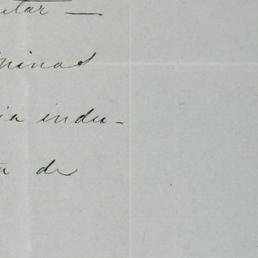 tar —
minas
ia indu-
de